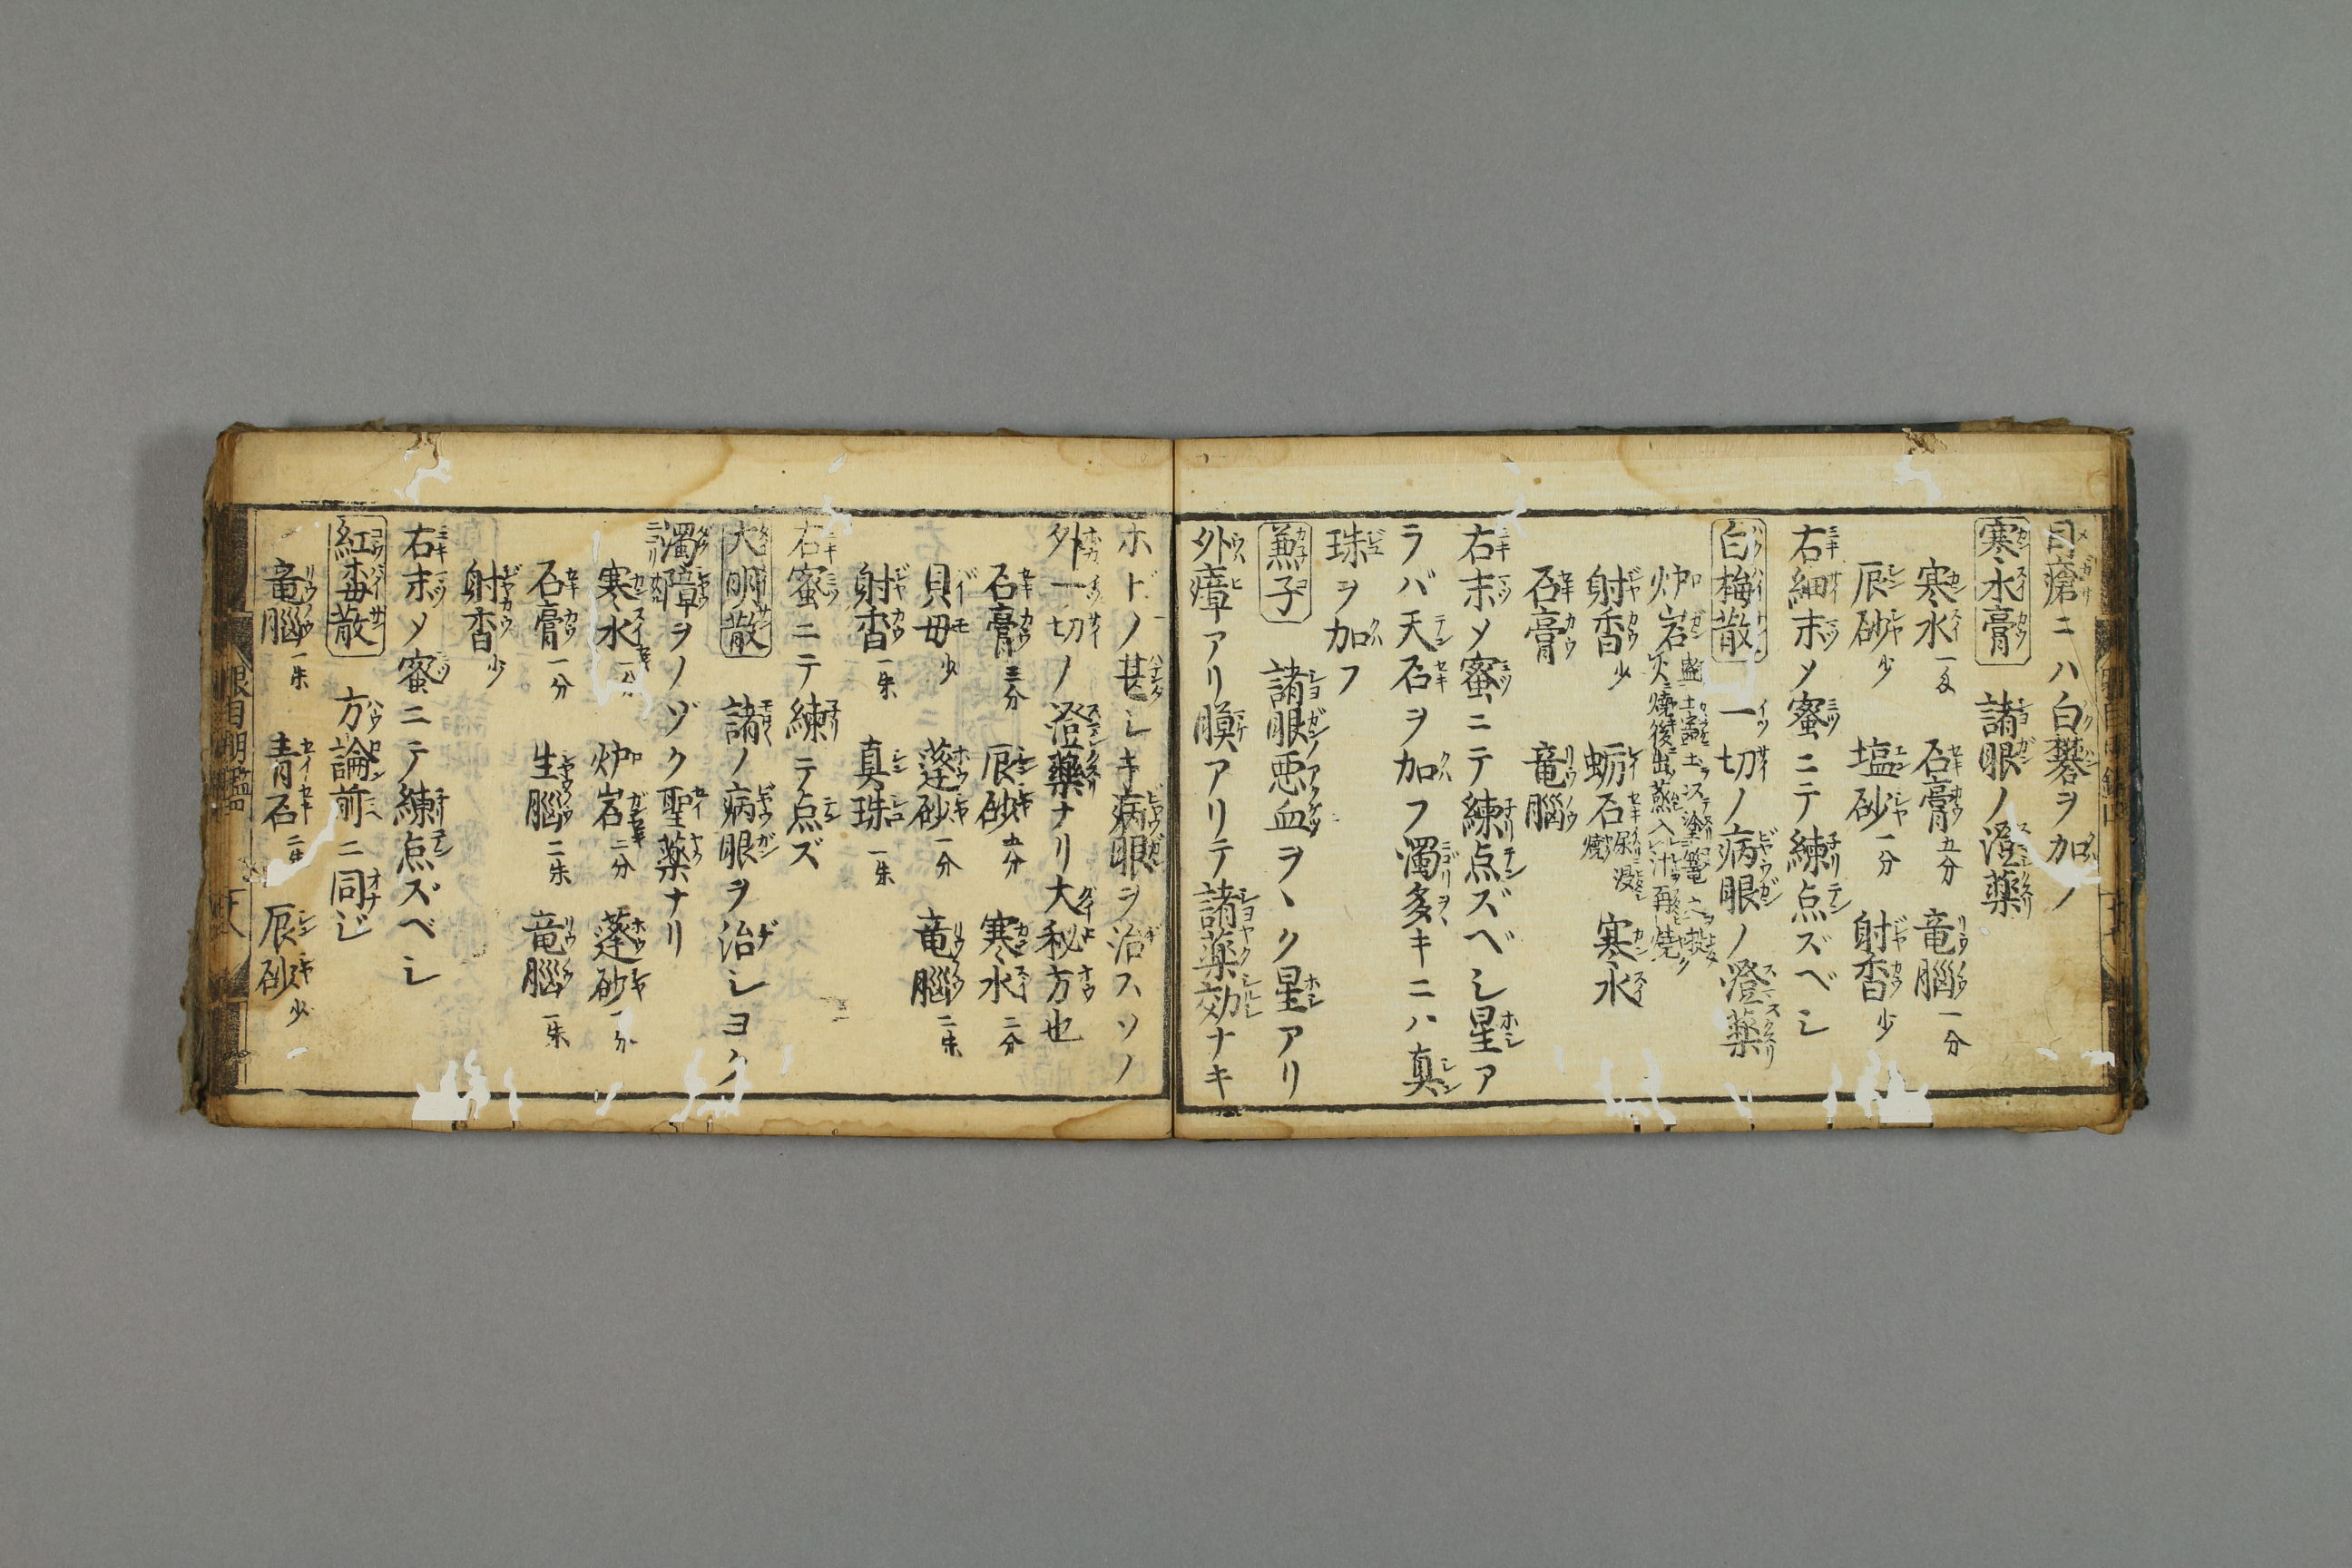 目瘡ニハ白礬ヲ加ノ
寒水膏 諸眼ノ澄薬
寒水 石膏五分 竜腦一分
辰砂少 塩砂一分 射香少
右細末〆蜜ニテ練点ズベシ
白梅散 一切ノ病眼ノ澄薬
炉岩
射香少 蛎石 寒水
石膏 竜腦
右末〆蜜ニテ練点ズベシ星ア
ラバ天石ヲ加フ濁多キニハ真
珠ヲ加フ
諸眼ノ悪血ヲヽク星アリ
外瘴アリ膜アリテ諸薬効ナキ
ホドノ甚シキ病眼ヲ治スソノ
外一切ノ澄藥ナリ大秘方也
石膏三分 辰砂五分 寒水二分
貝母少 蓬砂一分 竜腦二朱
射香一朱 真珠一朱
右蜜ニテ練テ点ズ
大明散 諸ノ病眼ヲ治シヨク
濁障ヲノゾク聖薬ナリ
寒水一分 炉岩二分 蓬砂一分
石膏一分 生腦二朱 竜腦一朱
射香少
右末〆蜜ニテ練点ズベシ
紅梅散 方論前ニ同ジ
竜腦一朱 青石二朱 辰砂少
眼目明鑑